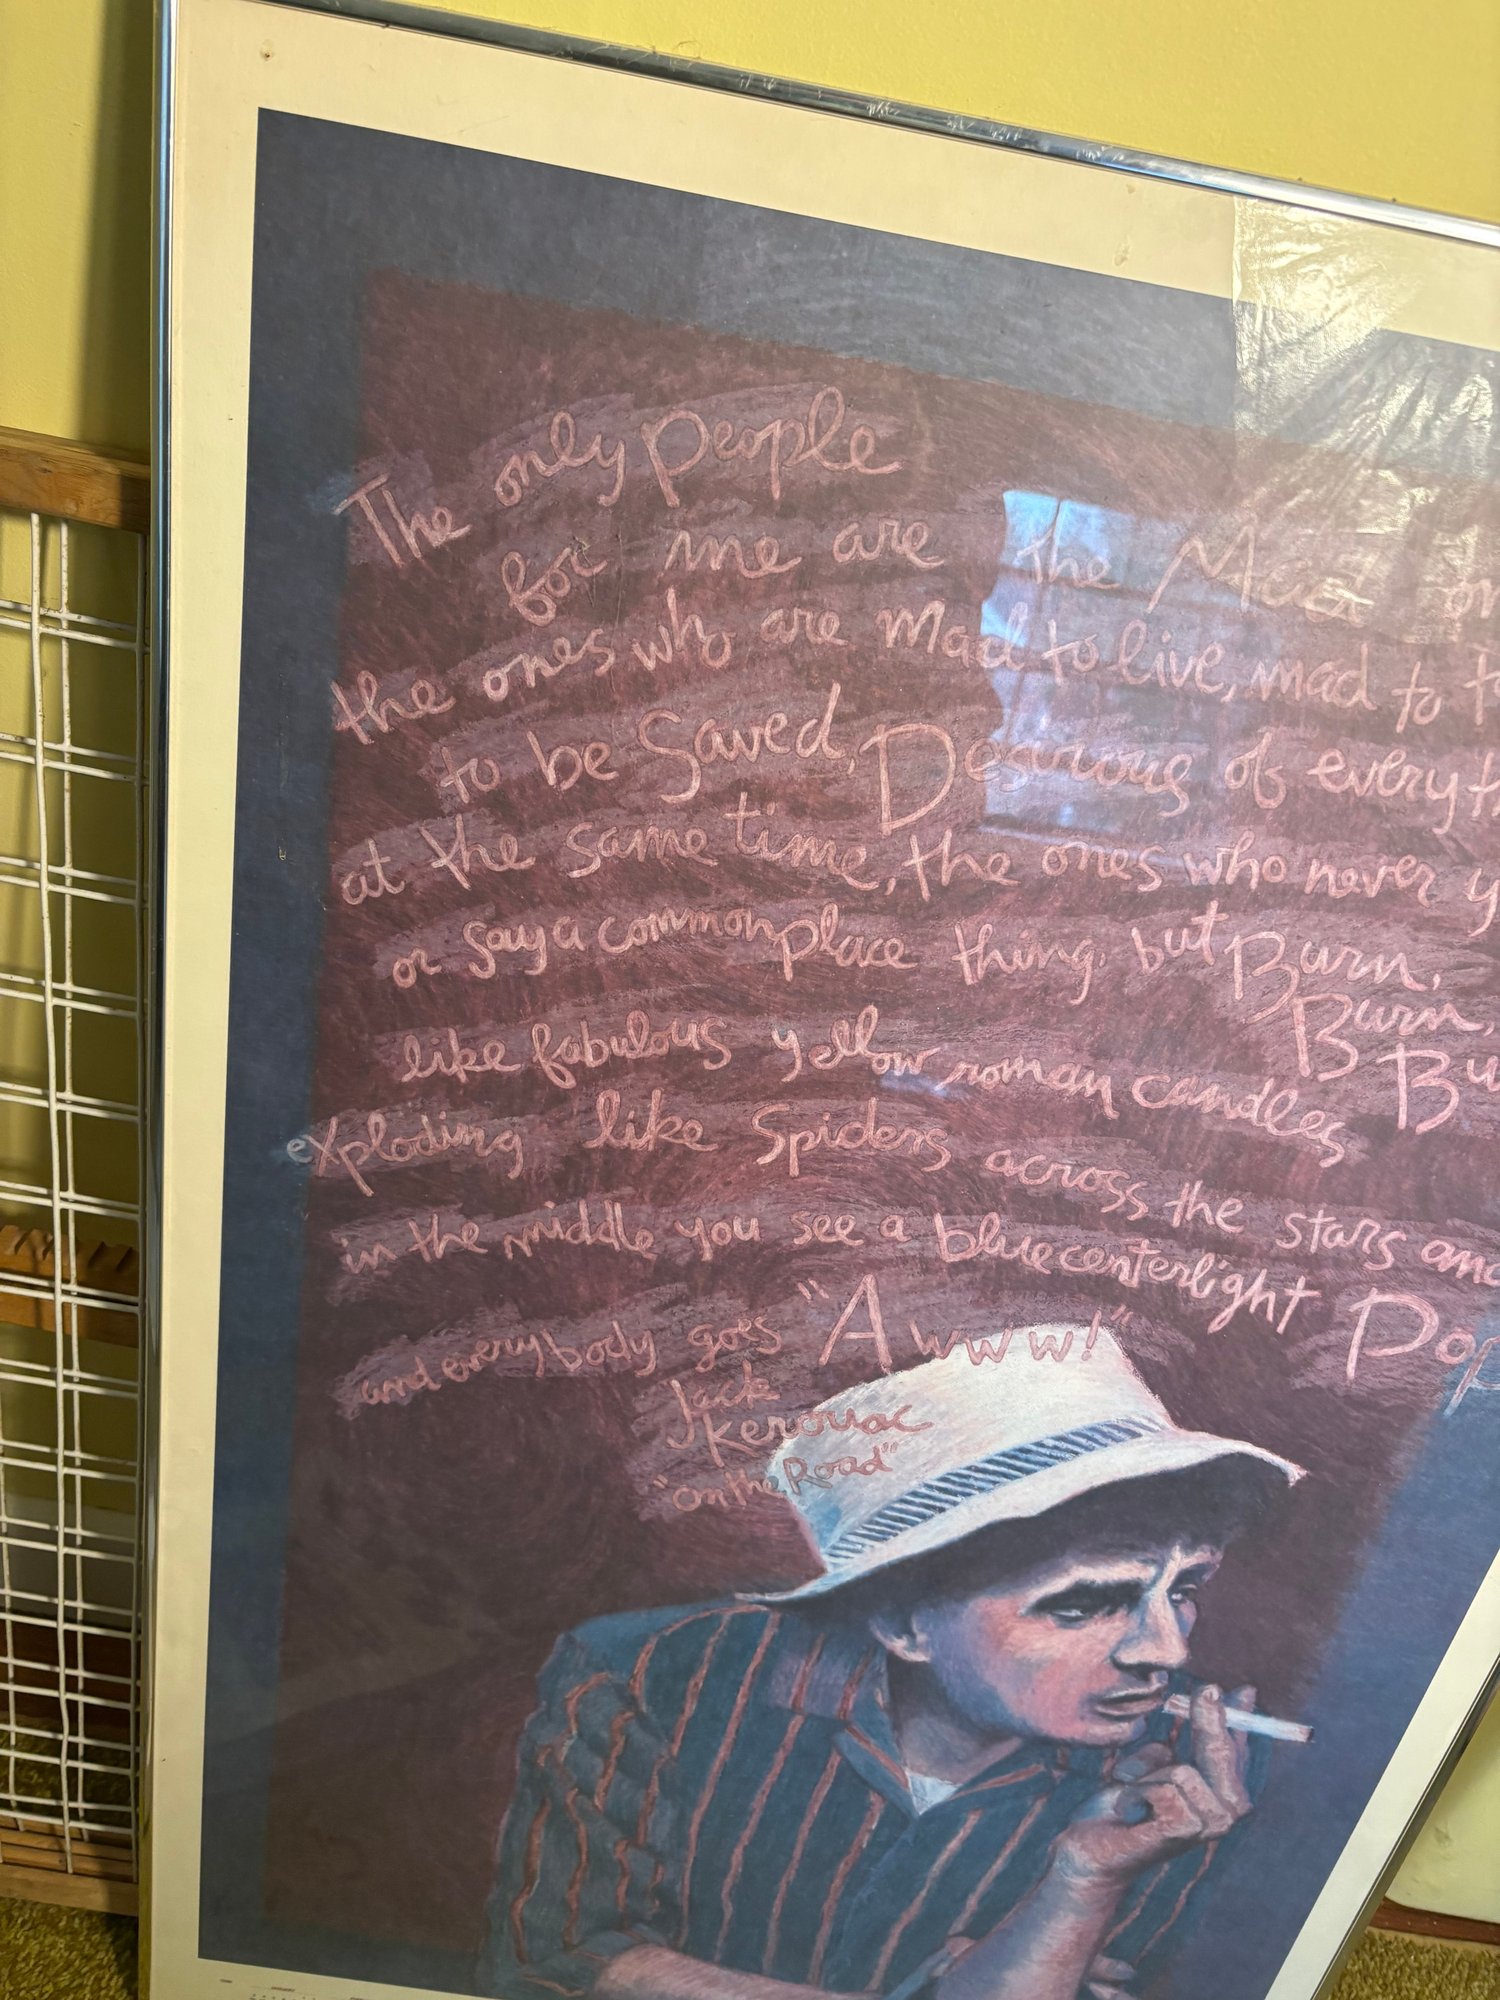 The only people
for me are the Mad
the ones who are mad to live, mad to
to be Saved, Desirous of
at the same time, the ones who never
or say a commonplace thing, but Burn,
Burn,
like fabulous yellow roman candles
exploding like Spiders across the stars
in the middle you see a bluecenterlight
and everybody goes "Awww!"
Jack
Kerouac
"on the Road"